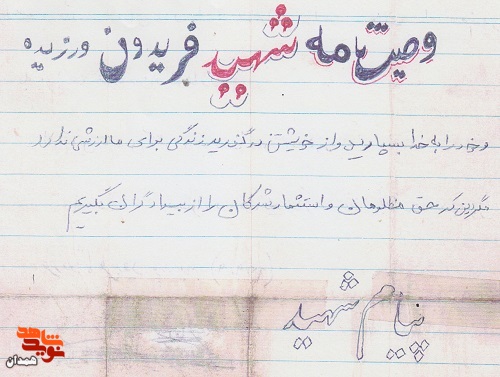 وصیت نامه شهید فریدون ورزیده
وخود را به خدا بسپارید و از خویشتن درگذرید زندگی برای ما ارزش ندارد
مگر این که حق مظلومان و استثمار شدگان را از بیدادگران بگیریم
پیام شهید
نوید شاهد
همدان